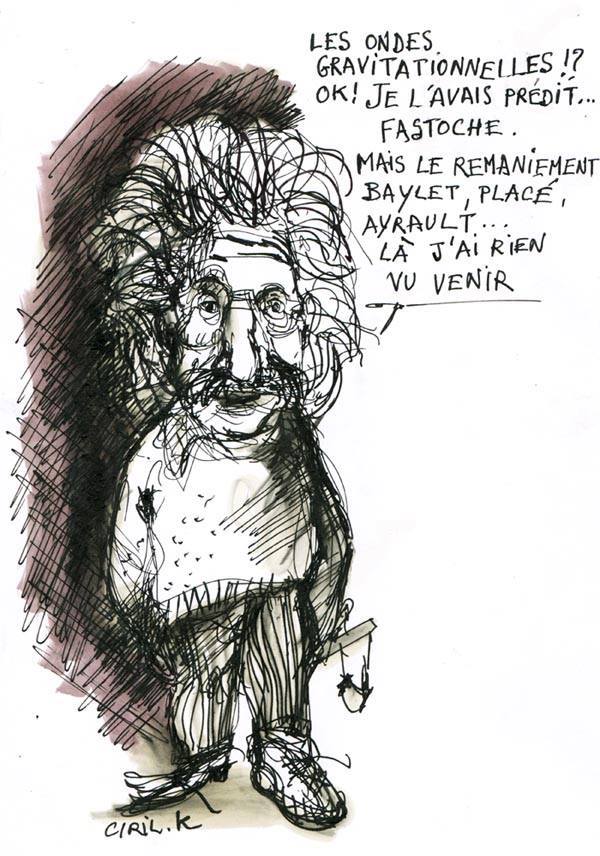 LES ONDES
GRAVITATIONNELLES !?
OK! JE L'AVAIS PRÉDIT...
FASTOCHE.
MAIS LE REMANIEMENT
BAYLET, PLACÉ,
AYRAULT...
LÀ J'AI RIEN
VU VENIR
CIRIL.K